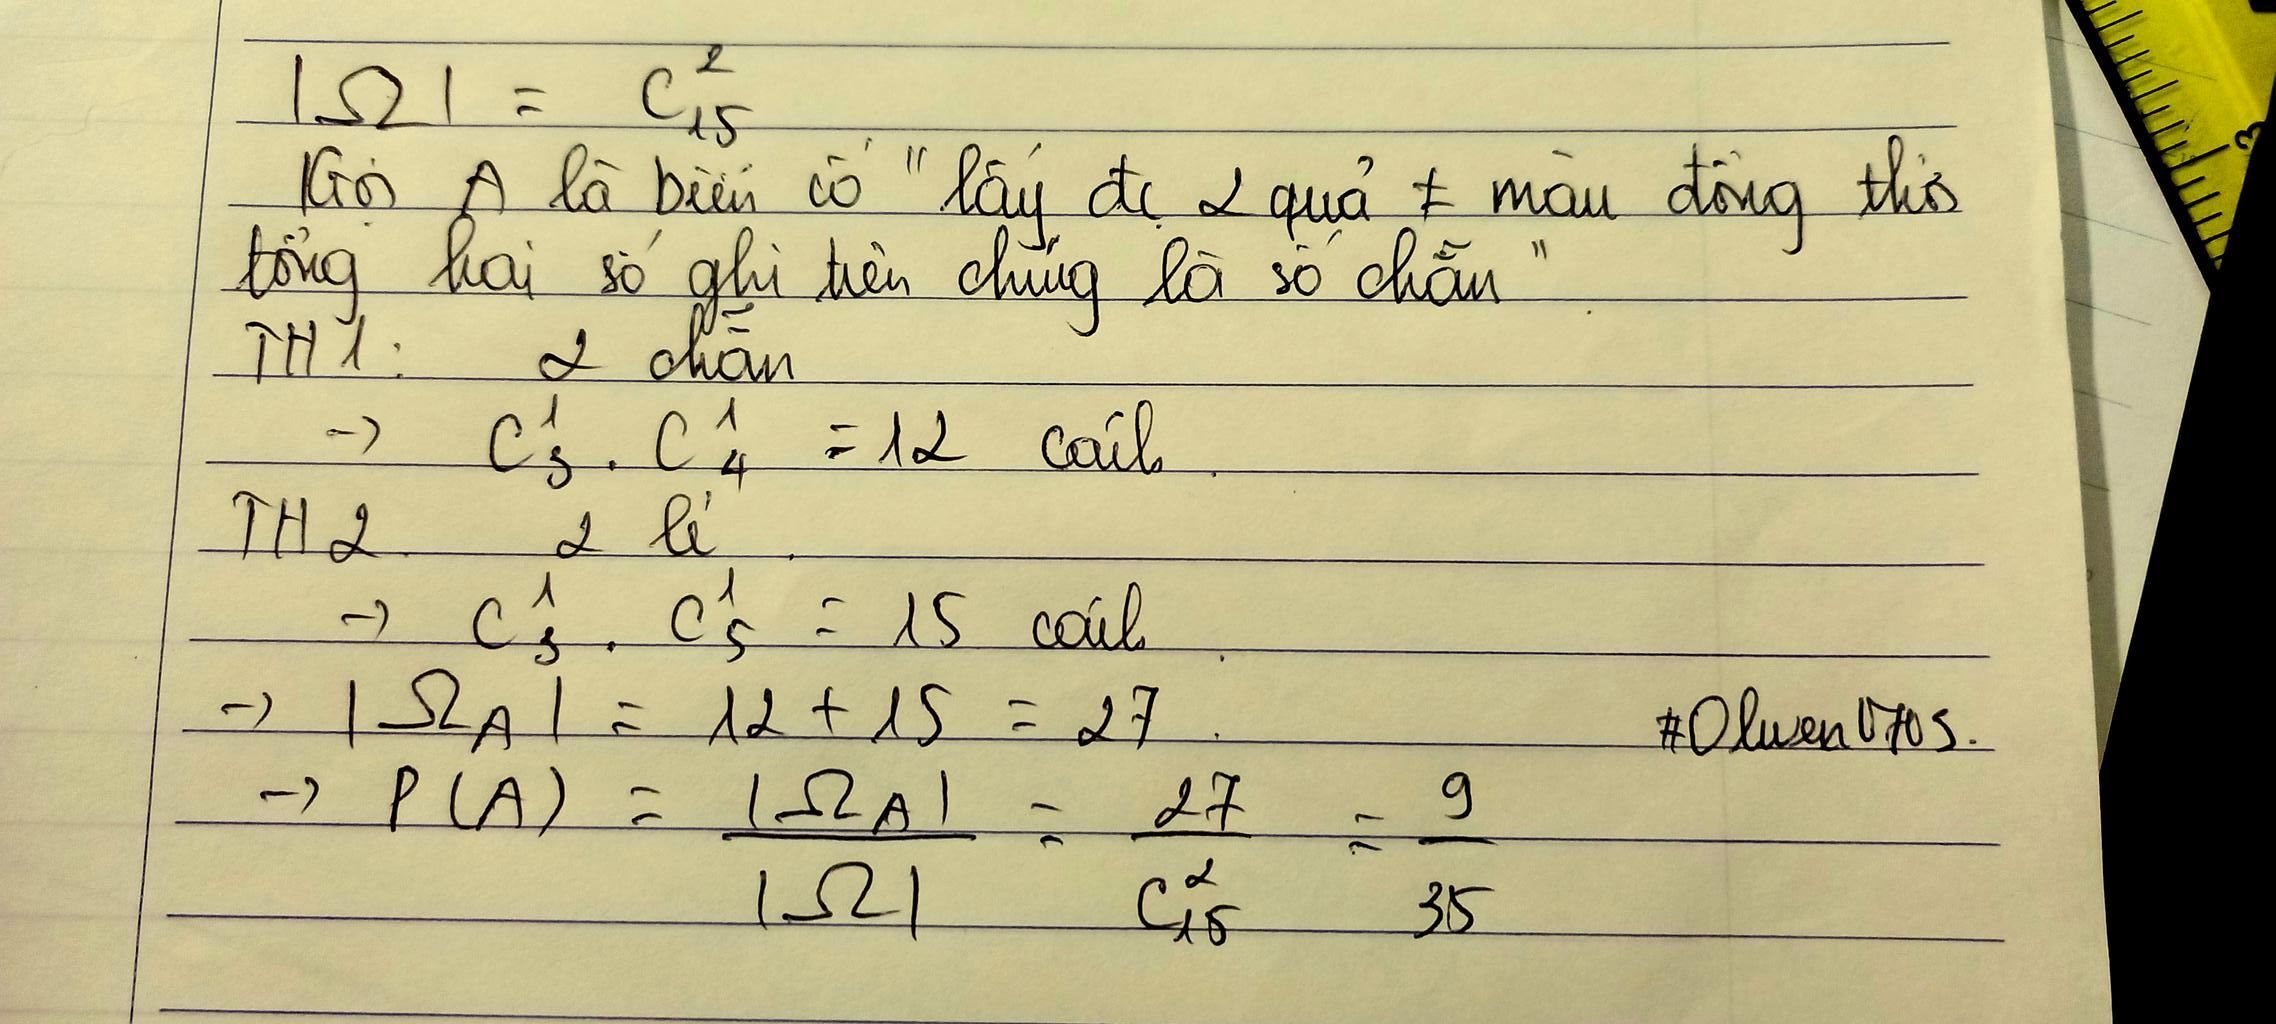 |Ω| = C²₁₅
Gọi A là biến cố "lấy đc 2 quả ≠ màu đồng thời
tổng hai số ghi trên chúng là số chẵn".
TH1: 2 chẵn
→ C¹₃ . C¹₄ = 12 cách.
TH2. 2 lẻ.
→ C¹₃ . C¹₅ = 15 cách.
→ |Ω_A| = 12 + 15 = 27.
#Olwen1705.
→ P(A) = |Ω_A| / |Ω| = 27 / C²₁₅ = 9 / 35